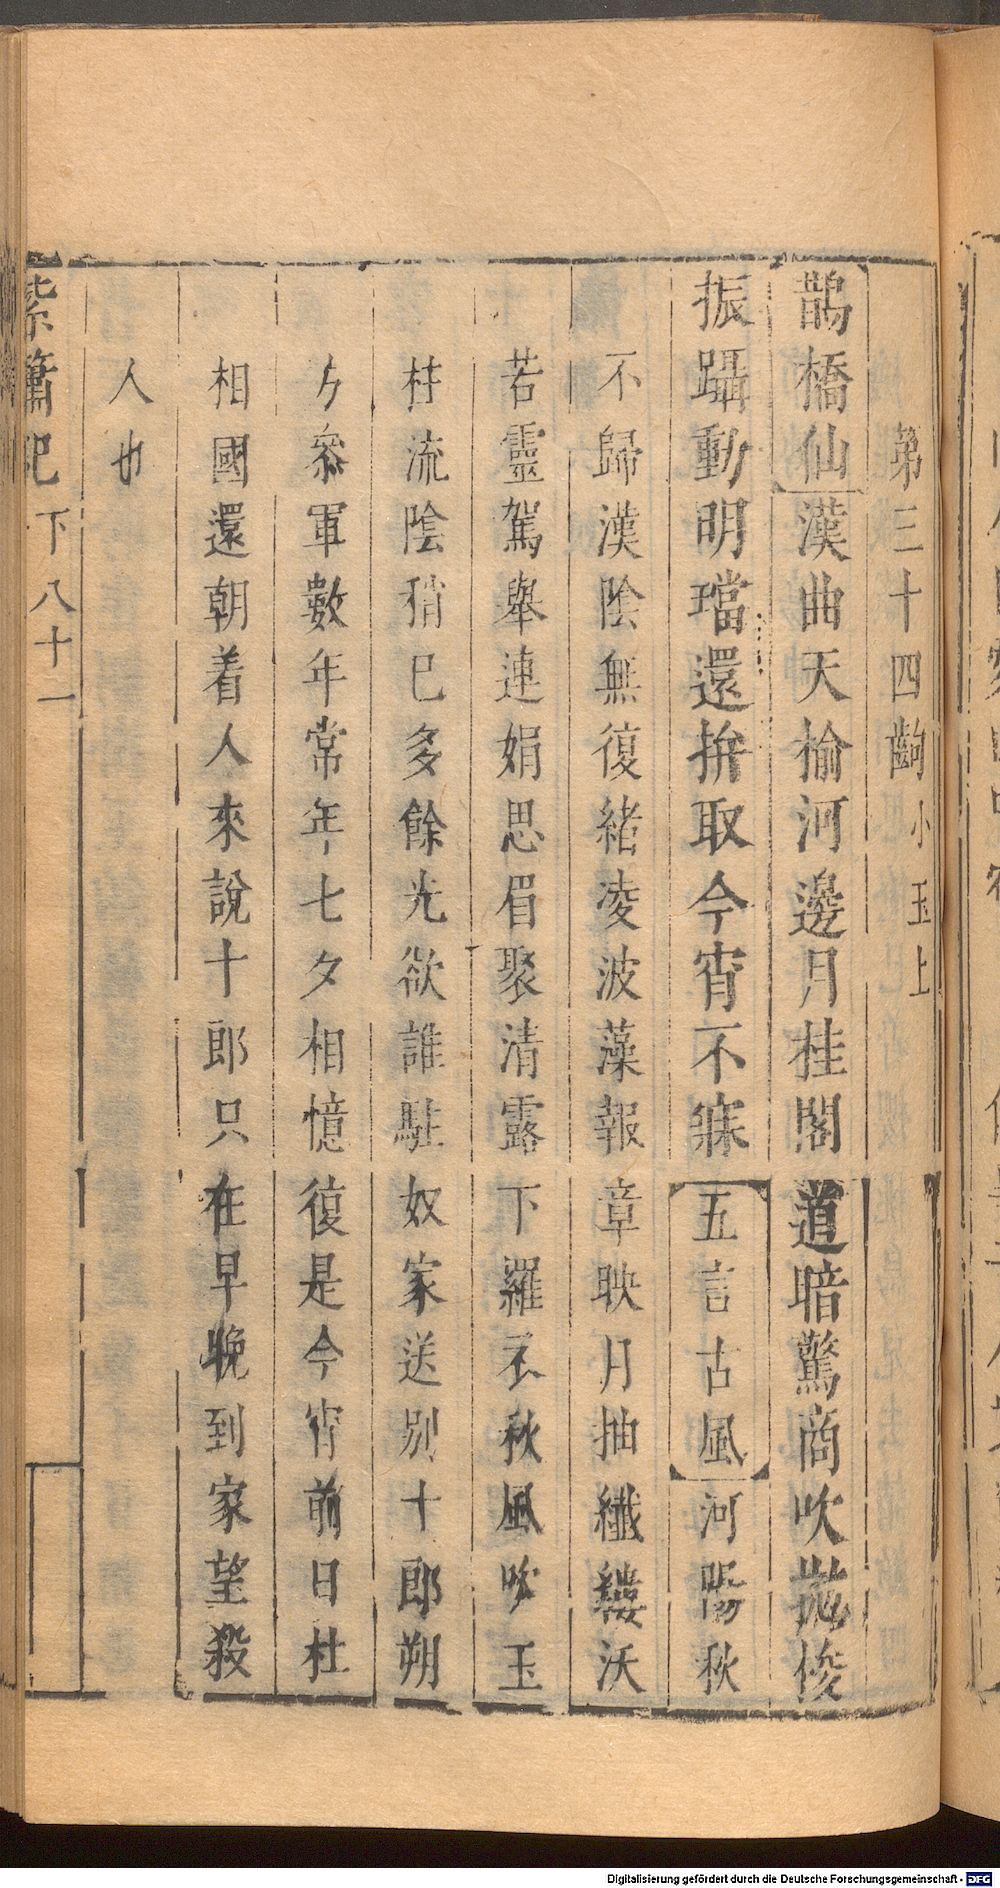 第三十四齣 小玉上
鵲橋仙 漢曲天榆河邊月桂閣道暗驚商吹拋梭
振躡動明璫還拚取今宵不寐 五言古風 河陽秋
不歸漢陰無復緒凌波藻報章映月抽纖縷沃
若靈駕舉連娟思眉聚清露下羅衣秋風吹玉
柱流陰稍已多餘光欲誰駐奴家送別十郎朔
方參軍數年常年七夕相憶復是今宵前日杜
相國還朝着人來說十郎只在早晚到家望殺
人也
紫簫記 下 八十一
Digitalisierung gefördert durch die Deutsche Forschungsgemeinschaft - DFG